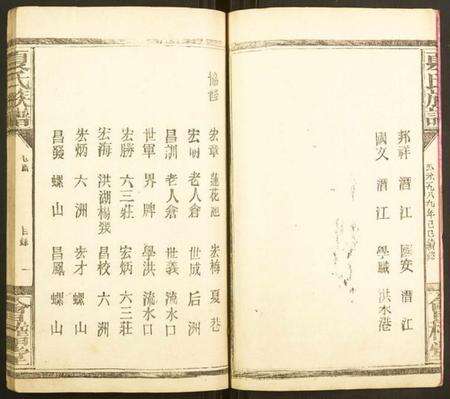 夏氏族譜
邦祥 潛江 國安 潛江
國文 潛江 學斌 洪水港
協修
宏章 蓮花池 宏梅 夏巷
宏明 老人倉 世成 后洲
昌訓 老人倉 世義 流水口
世軍 界牌 學洪 流水口
宏勝 六三莊 宏炳 六三莊
宏海 洪湖楊嶺 昌校 六洲
宏炳 六洲 宏才 螺山
昌發 螺山 昌鳳 螺山
夏氏族譜
卷首
目錄 一